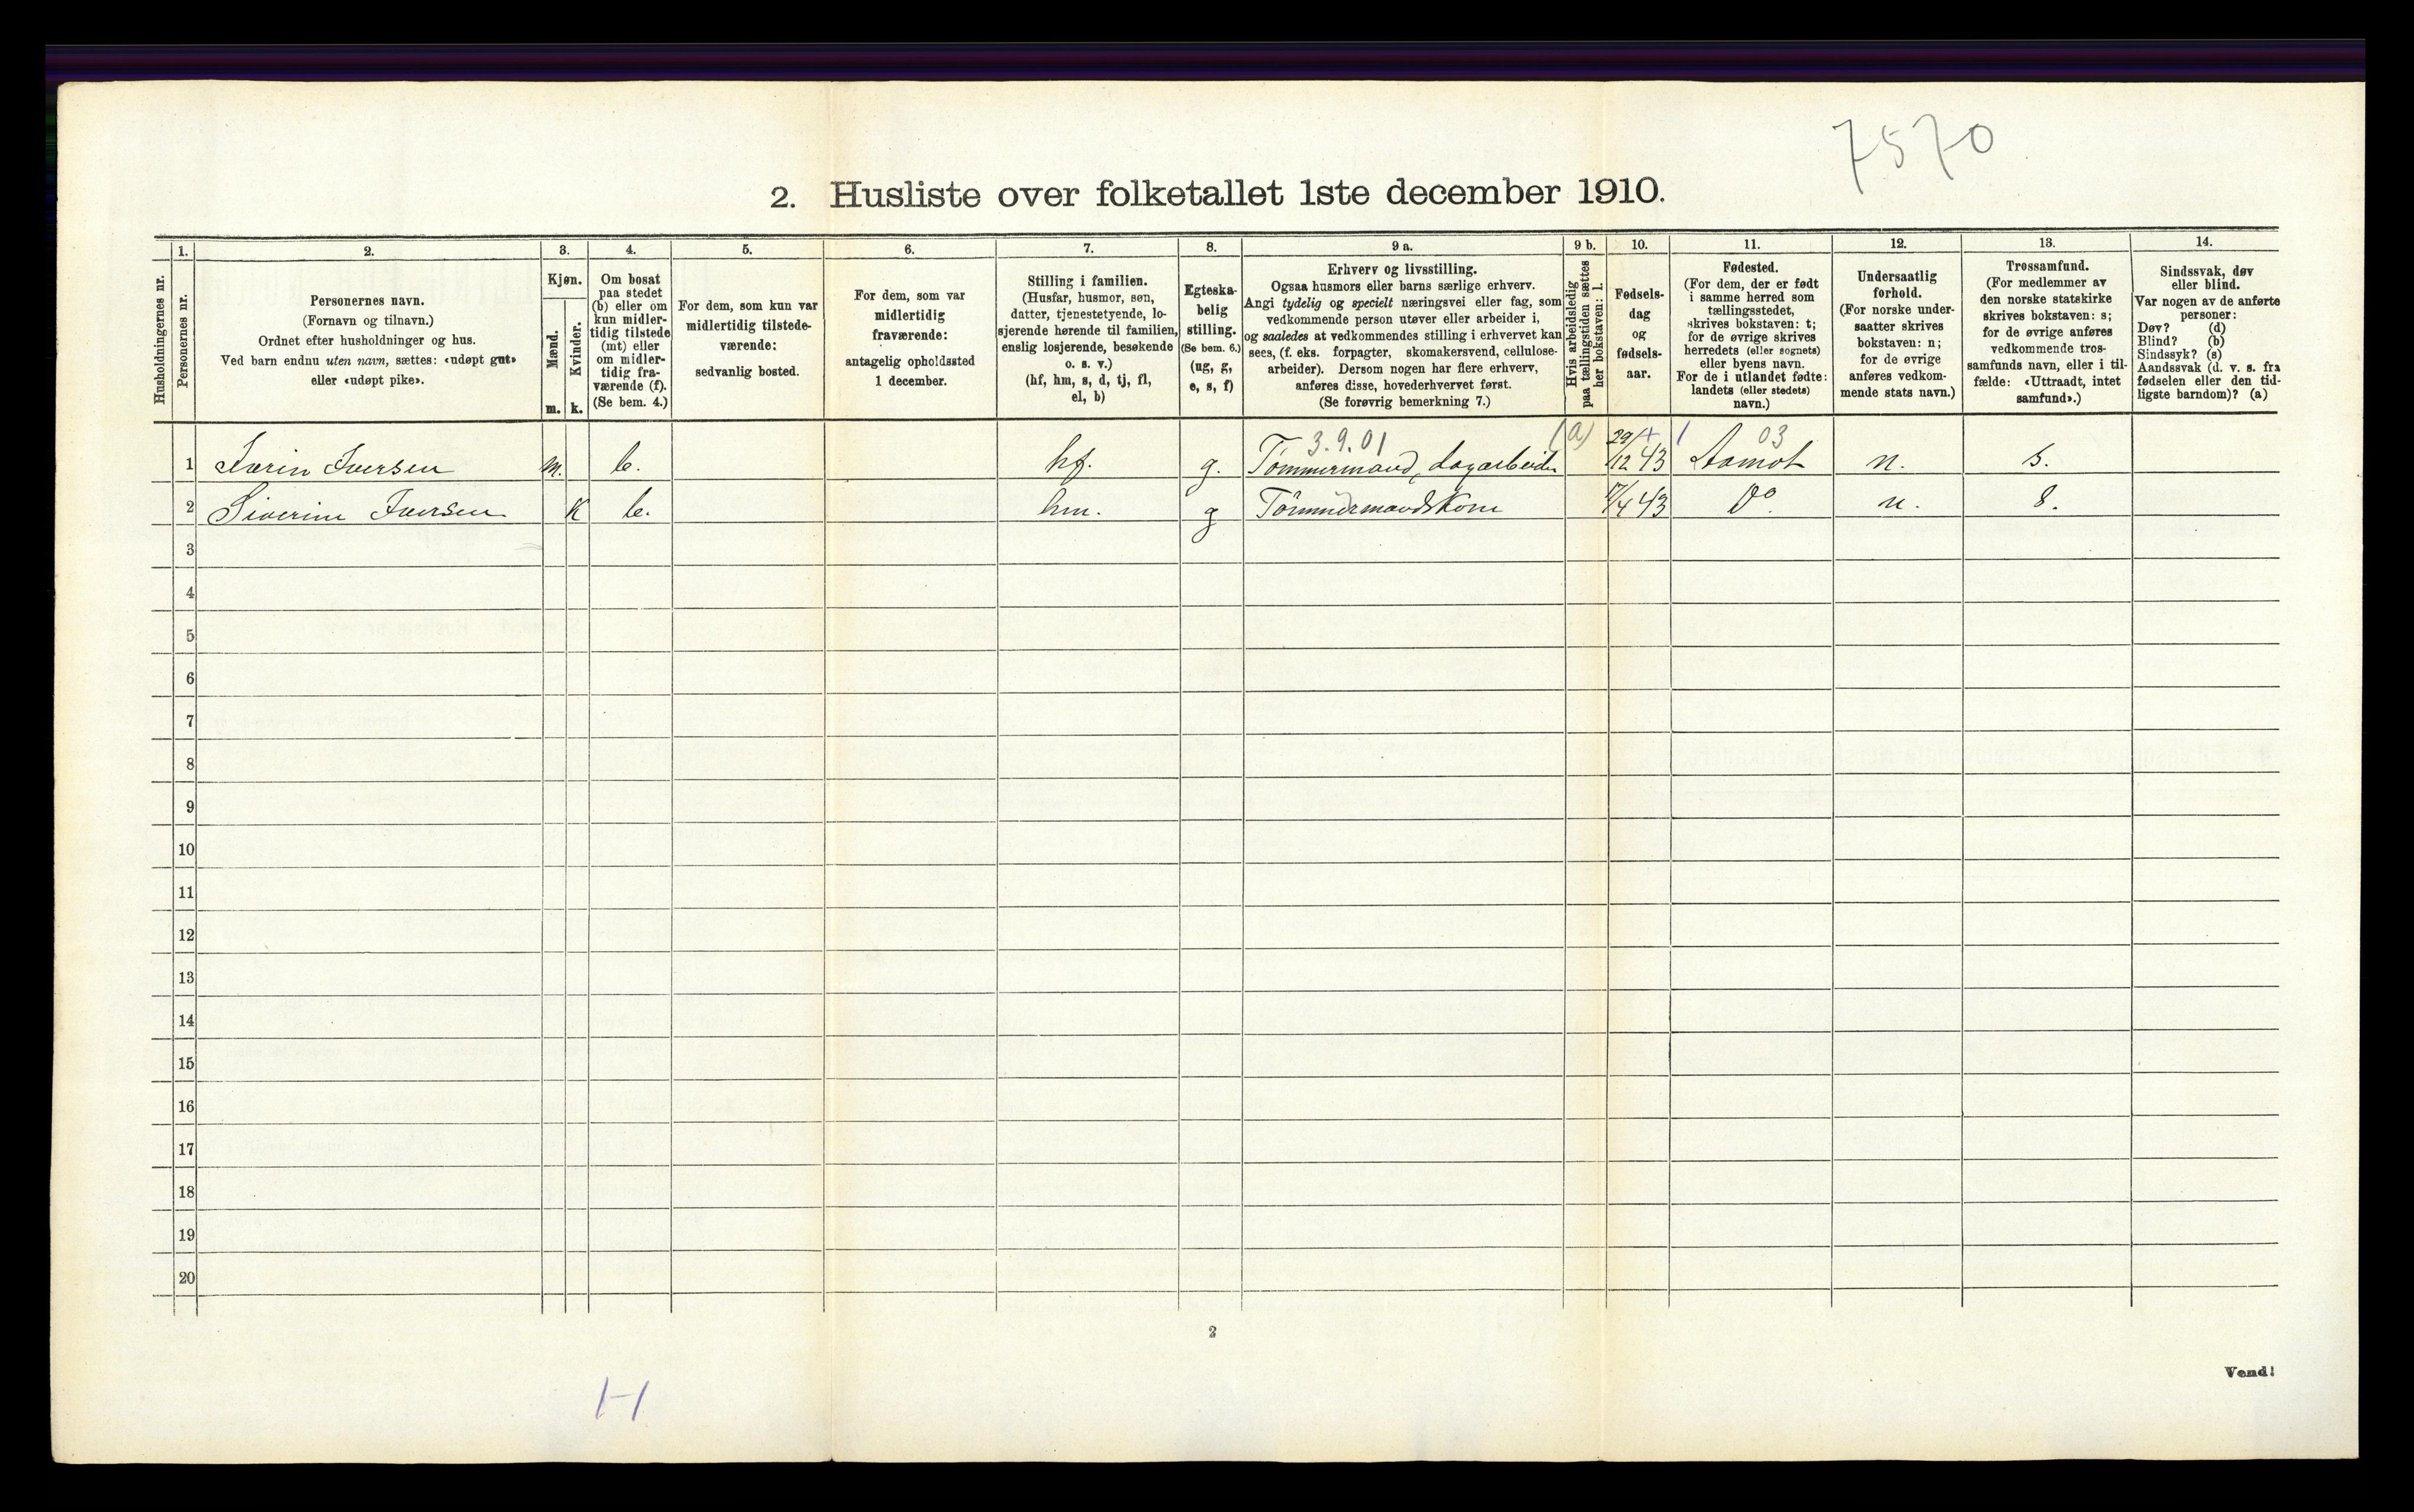 7570
2. Husliste over folketallet 1ste december 1910.
Husholdningernes nr.
1.
Personernes nr.
2.
Personernes navn.
(Fornavn og tilnavn.)
Ordnet efter husholdninger og hus.
Ved barn endnu uten navn, sættes: «udøpt gut»
eller «udøpt pike».
3.
Kjøn.
Mænd.
Kvinder.
m. k.
4.
Om bosat
paa stedet
(b) eller om
kun midler-
tidig tilstede
(mt) eller
om midler-
tidig fra-
værende (f).
(Se bem. 4.)
5.
For dem, som kun var
midlertidig tilstede-
værende:
sedvanlig bosted.
6.
For dem, som var
midlertidig
fraværende:
antagelig opholdssted
1 december.
7.
Stilling i familien.
(Husfar, husmor, søn,
datter, tjenestetyende, lo-
sjerende hørende til familien,
enslig losjerende, besøkende
o. s. v.)
(hf, hm, s, d, tj, fl,
el, b)
8.
Egteska-
belig
stilling.
(Se bem. 6.)
(ug, g,
e, s, f)
9 a.
Erhverv og livsstilling.
Ogsaa husmors eller barns særlige erhverv.
Angi tydelig og specielt næringsvei eller fag, som
vedkommende person utøver eller arbeider i,
og saaledes at vedkommendes stilling i erhvervet kan
sees, (f. eks. forpagter, skomakersvend, cellulose-
arbeider). Dersom nogen har flere erhverv,
anføres disse, hovederhvervet først.
(Se forøvrig bemerkning 7.)
9 b.
Hvis arbeidsledig
paa tællingstiden sættes
her bokstaven: l.
10.
Fødsels-
dag
og
fødsels-
aar.
11.
Fødested.
(For dem, der er født
i samme herred som
tællingsstedet,
skrives bokstaven: t;
for de øvrige skrives
herredets (eller sognets)
eller byens navn.
For de i utlandet fødte:
landets (eller stedets)
navn.)
12.
Undersaatlig
forhold.
(For norske under-
saatter skrives
bokstaven: n;
for de øvrige
anføres vedkom-
mende stats navn.)
13.
Trossamfund.
(For medlemmer av
den norske statskirke
skrives bokstaven: s;
for de øvrige anføres
vedkommende tros-
samfunds navn, eller i til-
fælde: «Uttraadt, intet
samfund».)
14.
Sindssvak, døv
eller blind.
Var nogen av de anførte
personer:
Døv? (d)
Blind? (b)
Sindssyk? (s)
Aandssvak (d. v. s. fra
fødselen eller den tid-
ligste barndom)? (a)
3.9.01 (a) 03
1 Iversen m. b. hf. g. Tømmermand, dagarbeider 29/12 43 Aamot n. s.
2 Siverine Iversen k b. hm. g Tømmermandskone 43 Do. n. s.
3
4
5
6
7
8
9
10
11
12
13
14
15
16
17
18
19
20
2
Vend!
H